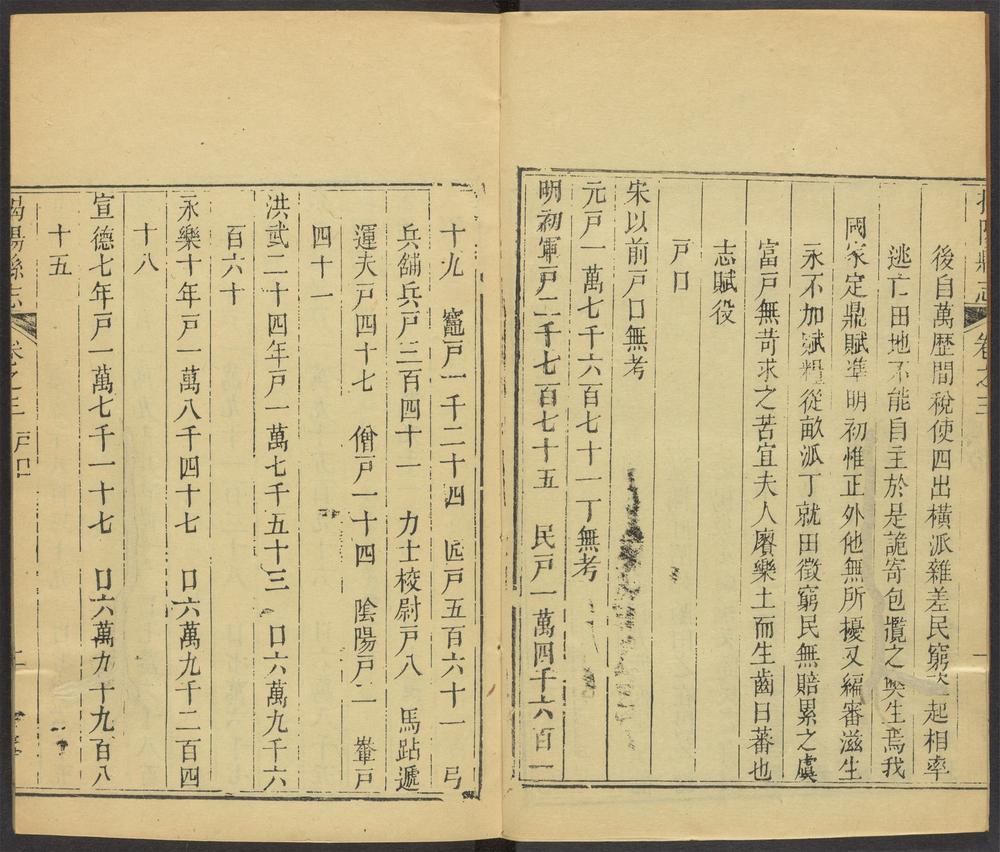 揭陽縣志 卷之三 一
後自萬歷間稅使四出橫派雜差民窮盜起相率
逃亡田地不能自主於是詭寄包攬之獘生焉我
國家定鼎賦準明初惟正外他無所擾又編審滋生
永不加賦糧從畝派丁就田徵窮民無賠累之虞
富戸無苛求之苦宜夫人慶樂土而生齒日蕃也
志賦役
戸口
宋以前戸口無考
元戸一萬七千六百七十一丁無考
明初軍戸二千七百七十五 民戸一萬四千六百一
十九 竈戸一千二十四 匠戸五百六十一 弓
兵舖兵戸三百四十一 力士校尉戸八 馬跕遞
運夫戸四十七 僧戸一十四 陰陽戸二 輋戸
四十一
洪武二十四年戸一萬七千五十三 口六萬九千六
百六十
永樂十年戸一萬八千四十七 口六萬九千二百四
十八
宣德七年戸一萬七千一十七 口六萬九十九百八
十五
揭陽縣志 卷之三 戸口 二